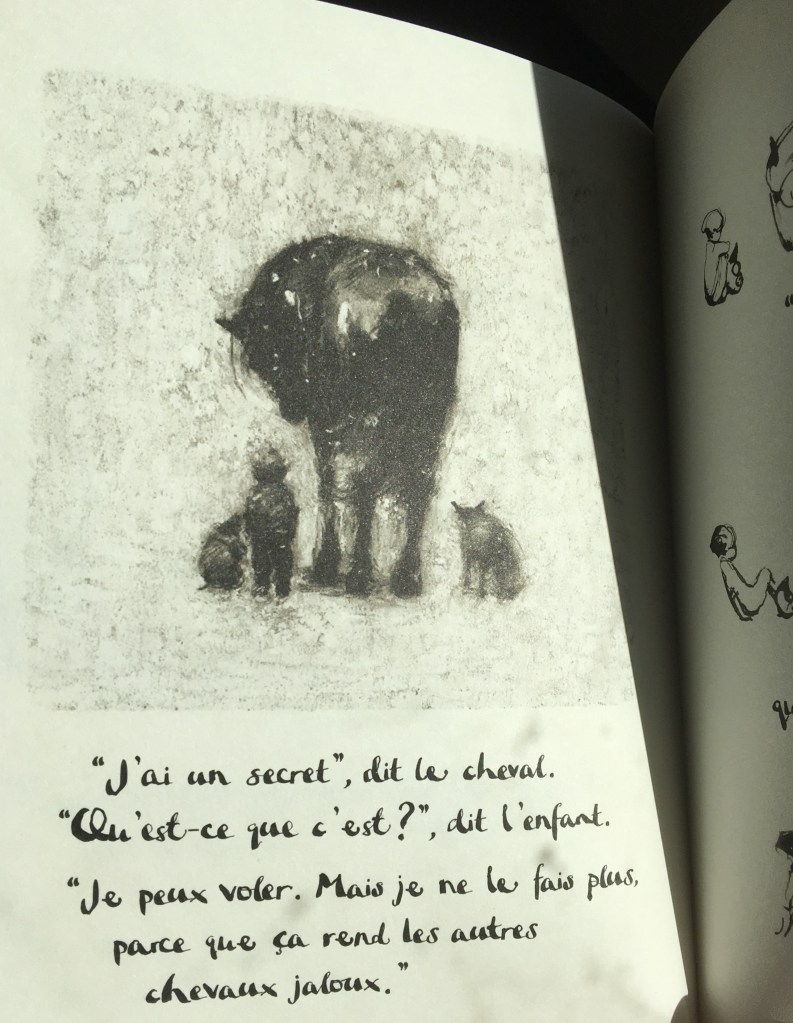 “J'ai un secret”, dit le cheval.
“Qu'est-ce que c'est?”, dit l'enfant.
“Je peux voler. Mais je ne le fais plus,
parce que ça rend les autres
chevaux jaloux.”